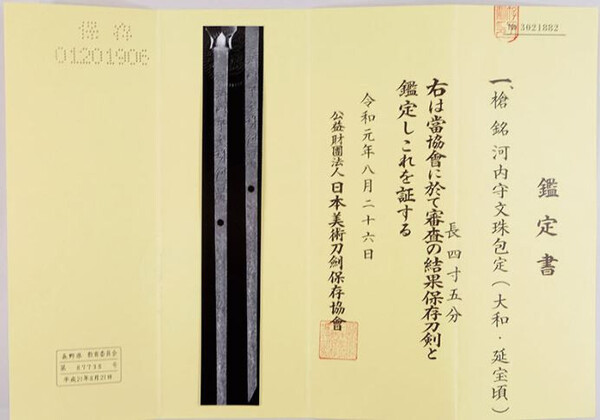 鑑定書
№ 3021882
一、槍 銘 河内守文珠包定(大和・延宝頃)
長 四寸五分
右は當協會に於て審査の結果保存刀剣と
鑑定しこれを証する
令和元年八月二十六日
公益財團法人 日本美術刀劍保存協會
保存
01201906
長野県 教育委員会
第 67738 号
平成21年8月21日